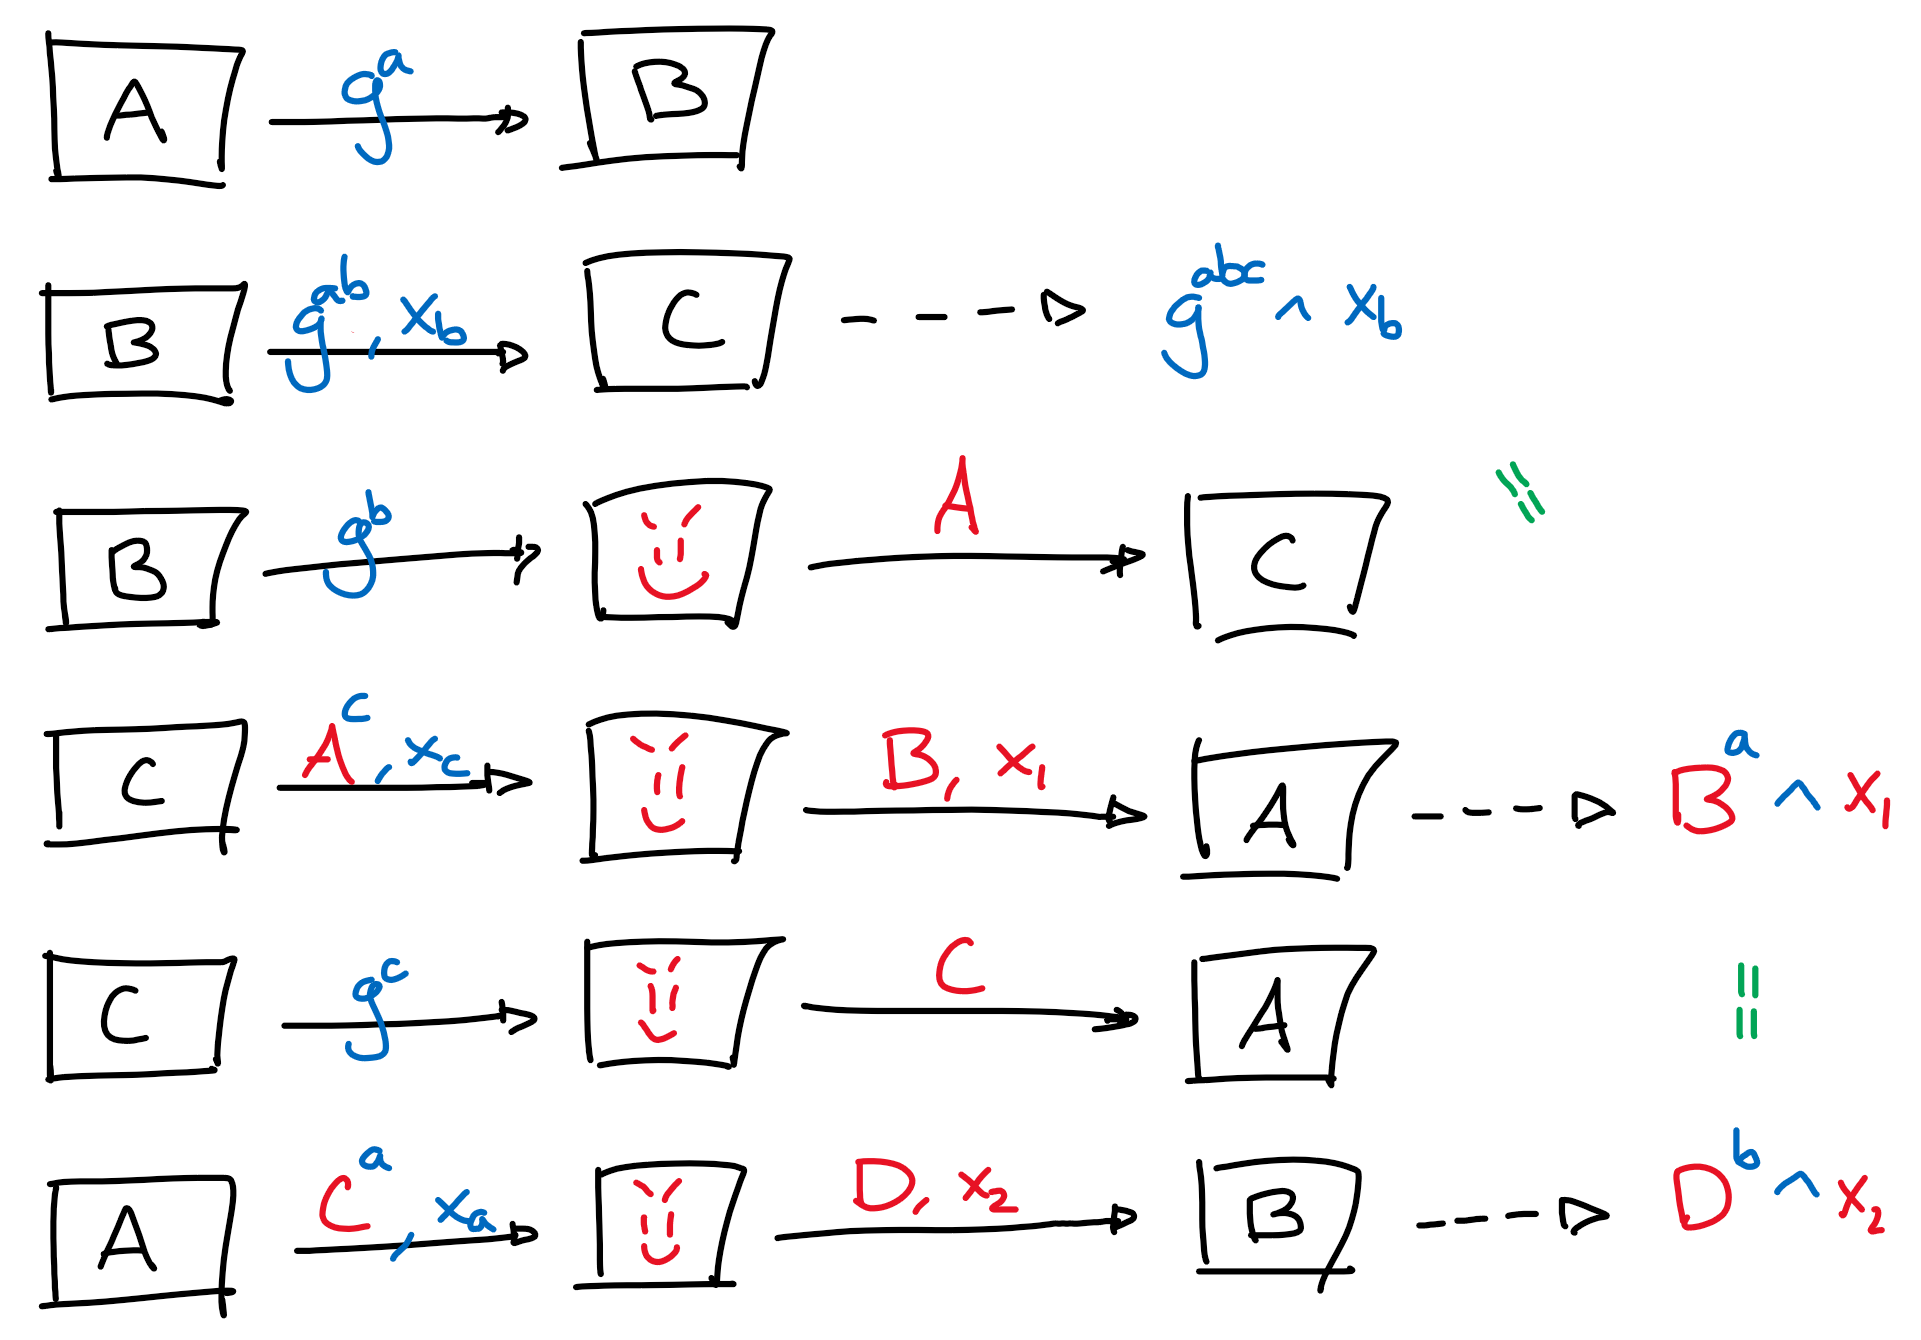 A g^a B
B g^{ab}, x_b C g^{abc} ^ x_b
B g^b A C =
C A^c, x_c B, x_1 A B^a ^ x_1
C g^c C A =
A C^a, x_a D, x_2 B D^b ^ x_2